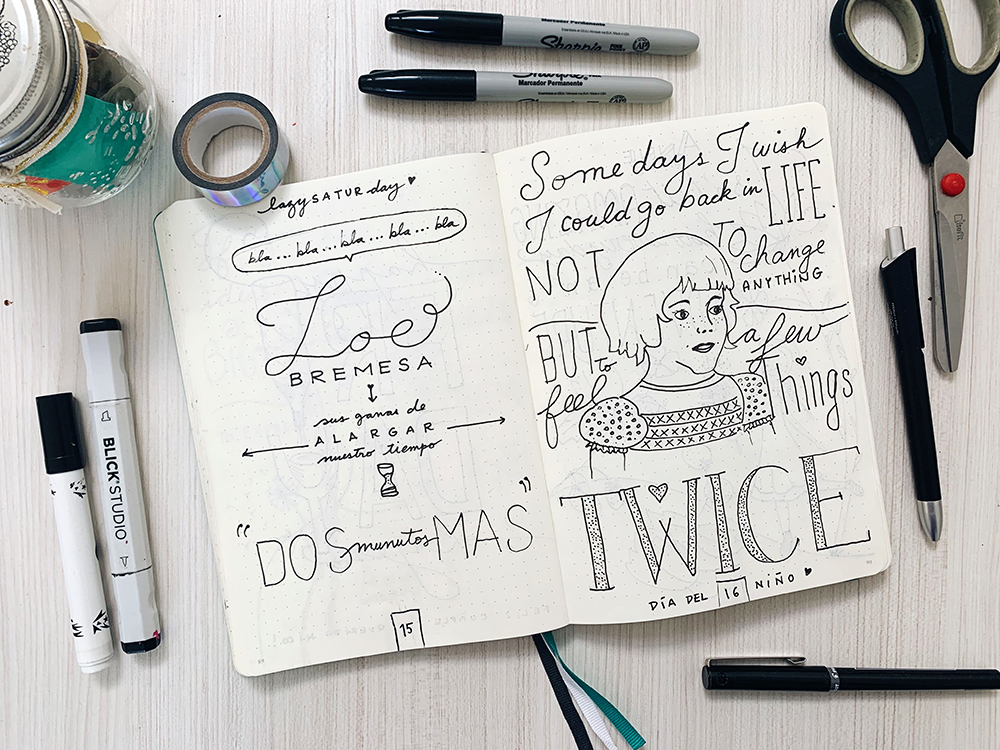 Marcador Permanente
Sharpie
AP
Sharpie
Marcador Permanente
BLICK STUDIO
lazy SATURday
bla... bla... bla... bla... bla
Zoe
BREMESA
sus ganas de
ALARGAR
nuestro tiempo
“DOS munutos MAS”
15
Some days I wish
I could go back in LIFE.
NOT TO change
ANYTHING
BUT to feel a few
Things
TWICE
DÍA DEL 16 NIÑO